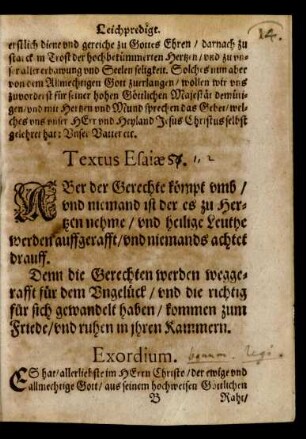 Leichpredigt.
14.
erstlich diene vnd gereiche zu Gottes Ehren / darnach zu
starck in Trost der hochbetümmerten Hertzen / vnd zu vn-
ser aller erbawung vnd Seelen seligkeit. Solches nun aber
von dem Allmechtigen Gott zuerlangen / wollen wir vns
zuvorderst für seiner hohen Göttlichen Majestät demüti-
gen / vnd mit Hertzen vnd Mund sprechen das Gebet / wel-
ches vns vnser HErr vnd Heyland Jesus Christus selbst
gelehret hat: Vnser Vatter etc.
Textus Esaiæ 57. 1, 2
ABer der Gerechte kömpt vmb /
vnd niemand ist der es zu Her-
tzen nehme / vnd heilige Leuthe
werden auffgerafft / vnd niemands achtet
drauff.
Denn die Gerechten werden wegge-
rafft für dem Vngelück / vnd die richtig
für sich gewandelt haben / kommen zum
Friede / vnd ruhen in jhren Kammern.
Exordium.
ES hat / allerliebste im HErrn Christo / der ewige vnd
allmechtige Gott / aus seinem hochweisen Göttlichen
B Raht /